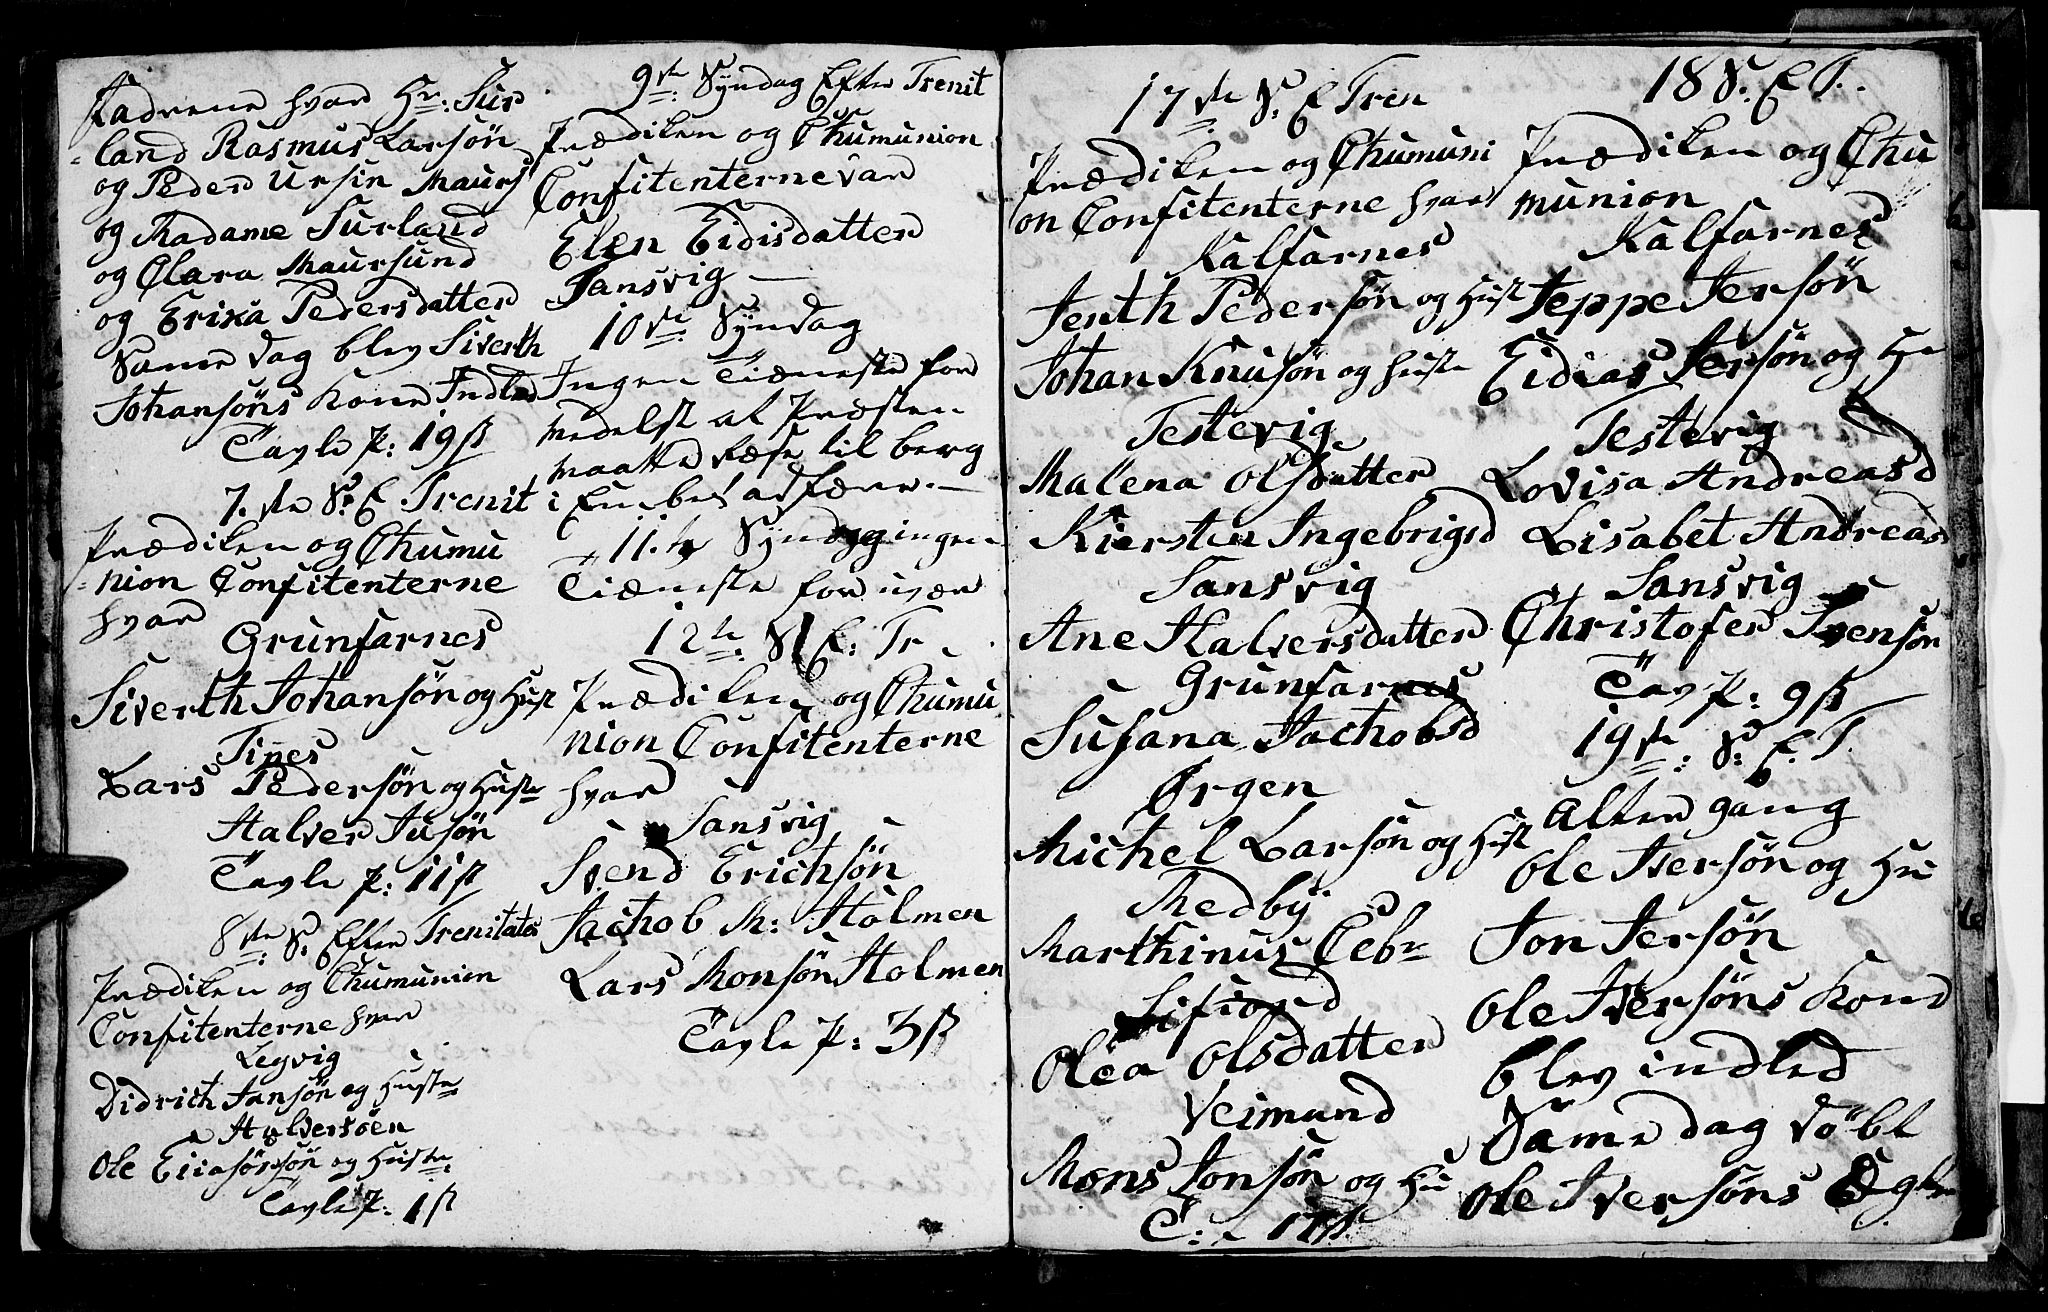 Fadrene hvar Hr: Sur
land Rasmus Larsøn
og Peder Ursin Maurs
og Madame Surland
og Clara Maursund
og Erixa Pedersdatter
Same dag blev Siverth
Johansøns Kone Indled
Tavle p: 19 ß
7.de S: E. Trenit
Prædiken og Chumu
nion Confitenterne
hvar
Grunfarnes
Siverth Johansøn og Hust
Tines
Lars Pedersøn og Huste
Halver Jusøn
Tavle p: 11 ß
8de S: Efter Trenitates
Prædiken og Chumunion
Confitenterne hvar
Legvig
Didrich Jansøn og Huste
Halversøen
Ole og Huste
Tavle p. 1 ß
9de: Syndag Efter Trenit
Prædiken og Chumunion
Confitenterne var
Elen Eidisdatter
Sansvig
10de: Syndag
Ingen Tiæneste for
medelst at Præsten
maatte til berg
i Embedsadfærer
11.te Syndag ingen
Tiæneste for uvær
12te: S E: Tr
Prædiken og Chumu
nion Confitenterne
hvar
Sansvig
Svend Erichsøn
Jachob M: Holmen
Lars Monsøn Holmen
Tavle p: 3 ß
17de S: E Tren
Prædiken og Chumuni
on Confitenterne hvar
Kalfarnes
Jenth Pedersøn og Hust
Johan Knusøn og huste
Testevig
Mallena Olsdatter
Kiersten Ingebrigsd
Sansvig
Ane Halversdatter
Grunfarnes
Susana Jachobsd
Ørgen
Michel Larsøn og Hust
Medbÿ
Marthinus Ceb
Sifiord
Olea Olsdatter
Veimand
Mons Jonsøn og Hu
T: 17 ß
18 S: E T.
Prædiken og Chu
munion
Kalfarnes
Jeppe Jersøn
Eidias Jersøn og H
Testevig
Lovisa Andreasd
Lisabet Andreasd
Sansvig
Christofer Svensøn
Tav p: 9 ß
19de: S: E. T.
Alter gang
Ole Iversøn og Hu
Jon Jersøn
Ole Iversøns Kone
blev indled
Same dag døbt
Ole Iversøns Egte